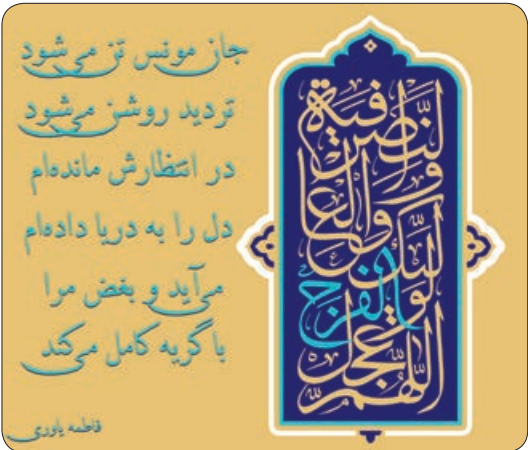 جان مونس تن می‌شود
تردید روشن می‌شود
در انتظارش مانده‌ام
دل را به دریا داده‌ام
می‌آید و بغض مرا
با گریه کامل می‌کند
فاطمه یاوری
اللهم عجل
لولیک الفرج
والعافیة
والنصر